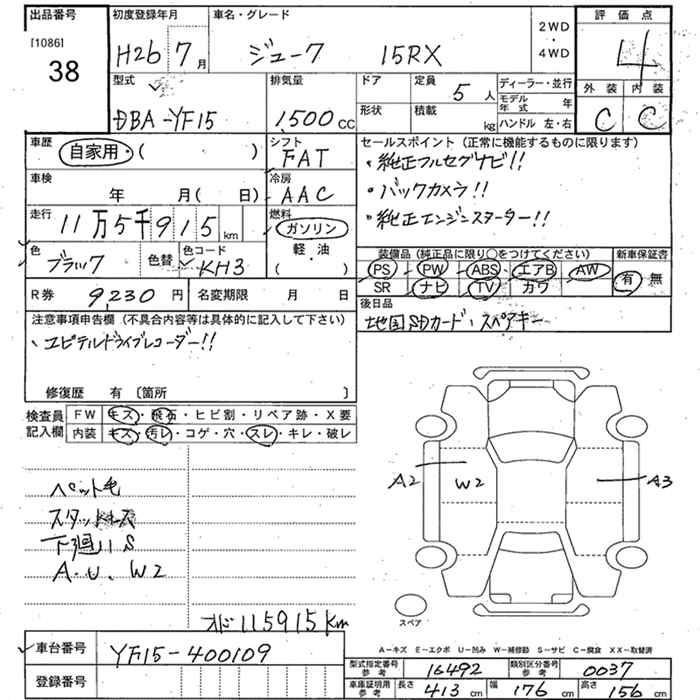 出品番号 初度登録年月 車名・グレード 2WD・4WD 評価点
[1086]
38 H26 7月 ジューク 15RX 4
型式 排気量 ドア 定員 5人 ディーラー・並行 外装 内装
DBA-YF15 1,500cc 形状 積載 kg モデル年式 年 C C
ハンドル 左・右
車歴 自家用・( ) シフト FAT セールスポイント (正常に機能するものに限ります)
・純正フルセグナビ!!
車検 年 月( 日) 冷房 AAC ・バックカメラ!!
走行 11万5千915km 燃料 ガソリン ・純正エンジンスターター!!
軽・油
( )
色 ブラック 色替 色コード KH3 装備品 (純正品に限り○をつけてください) 新車保証書
PS PW ABS エアB AW 有 無
R券 9,230円 名変期限 月 日 SR ナビ TV カワ
注意事項申告欄 (不具合内容等は具体的に記入して下さい) 後日品
地図SDカード・スペアキー
・ユピテルドライブレコーダー!!
修復歴 有 〔箇所 〕
検査員記入欄 FW キズ・飛石・ヒビ割・リペア跡・X要
内装 キズ・汚レ・コゲ・穴・スレ・キレ・破レ
A2 W2 A3
ペット毛
下廻りS
A.U.W2
スペア
オド115915Km
A-キズ E-エクボ U-凹み W-補修跡 S-サビ C-腐食 XX-取替済
車台番号 YF15-400109
型式指定番号 参考 16492 類別区分番号 参考 0037
登録番号
車庫証明用 参考 長さ 413cm 幅 176cm 高さ 156cm